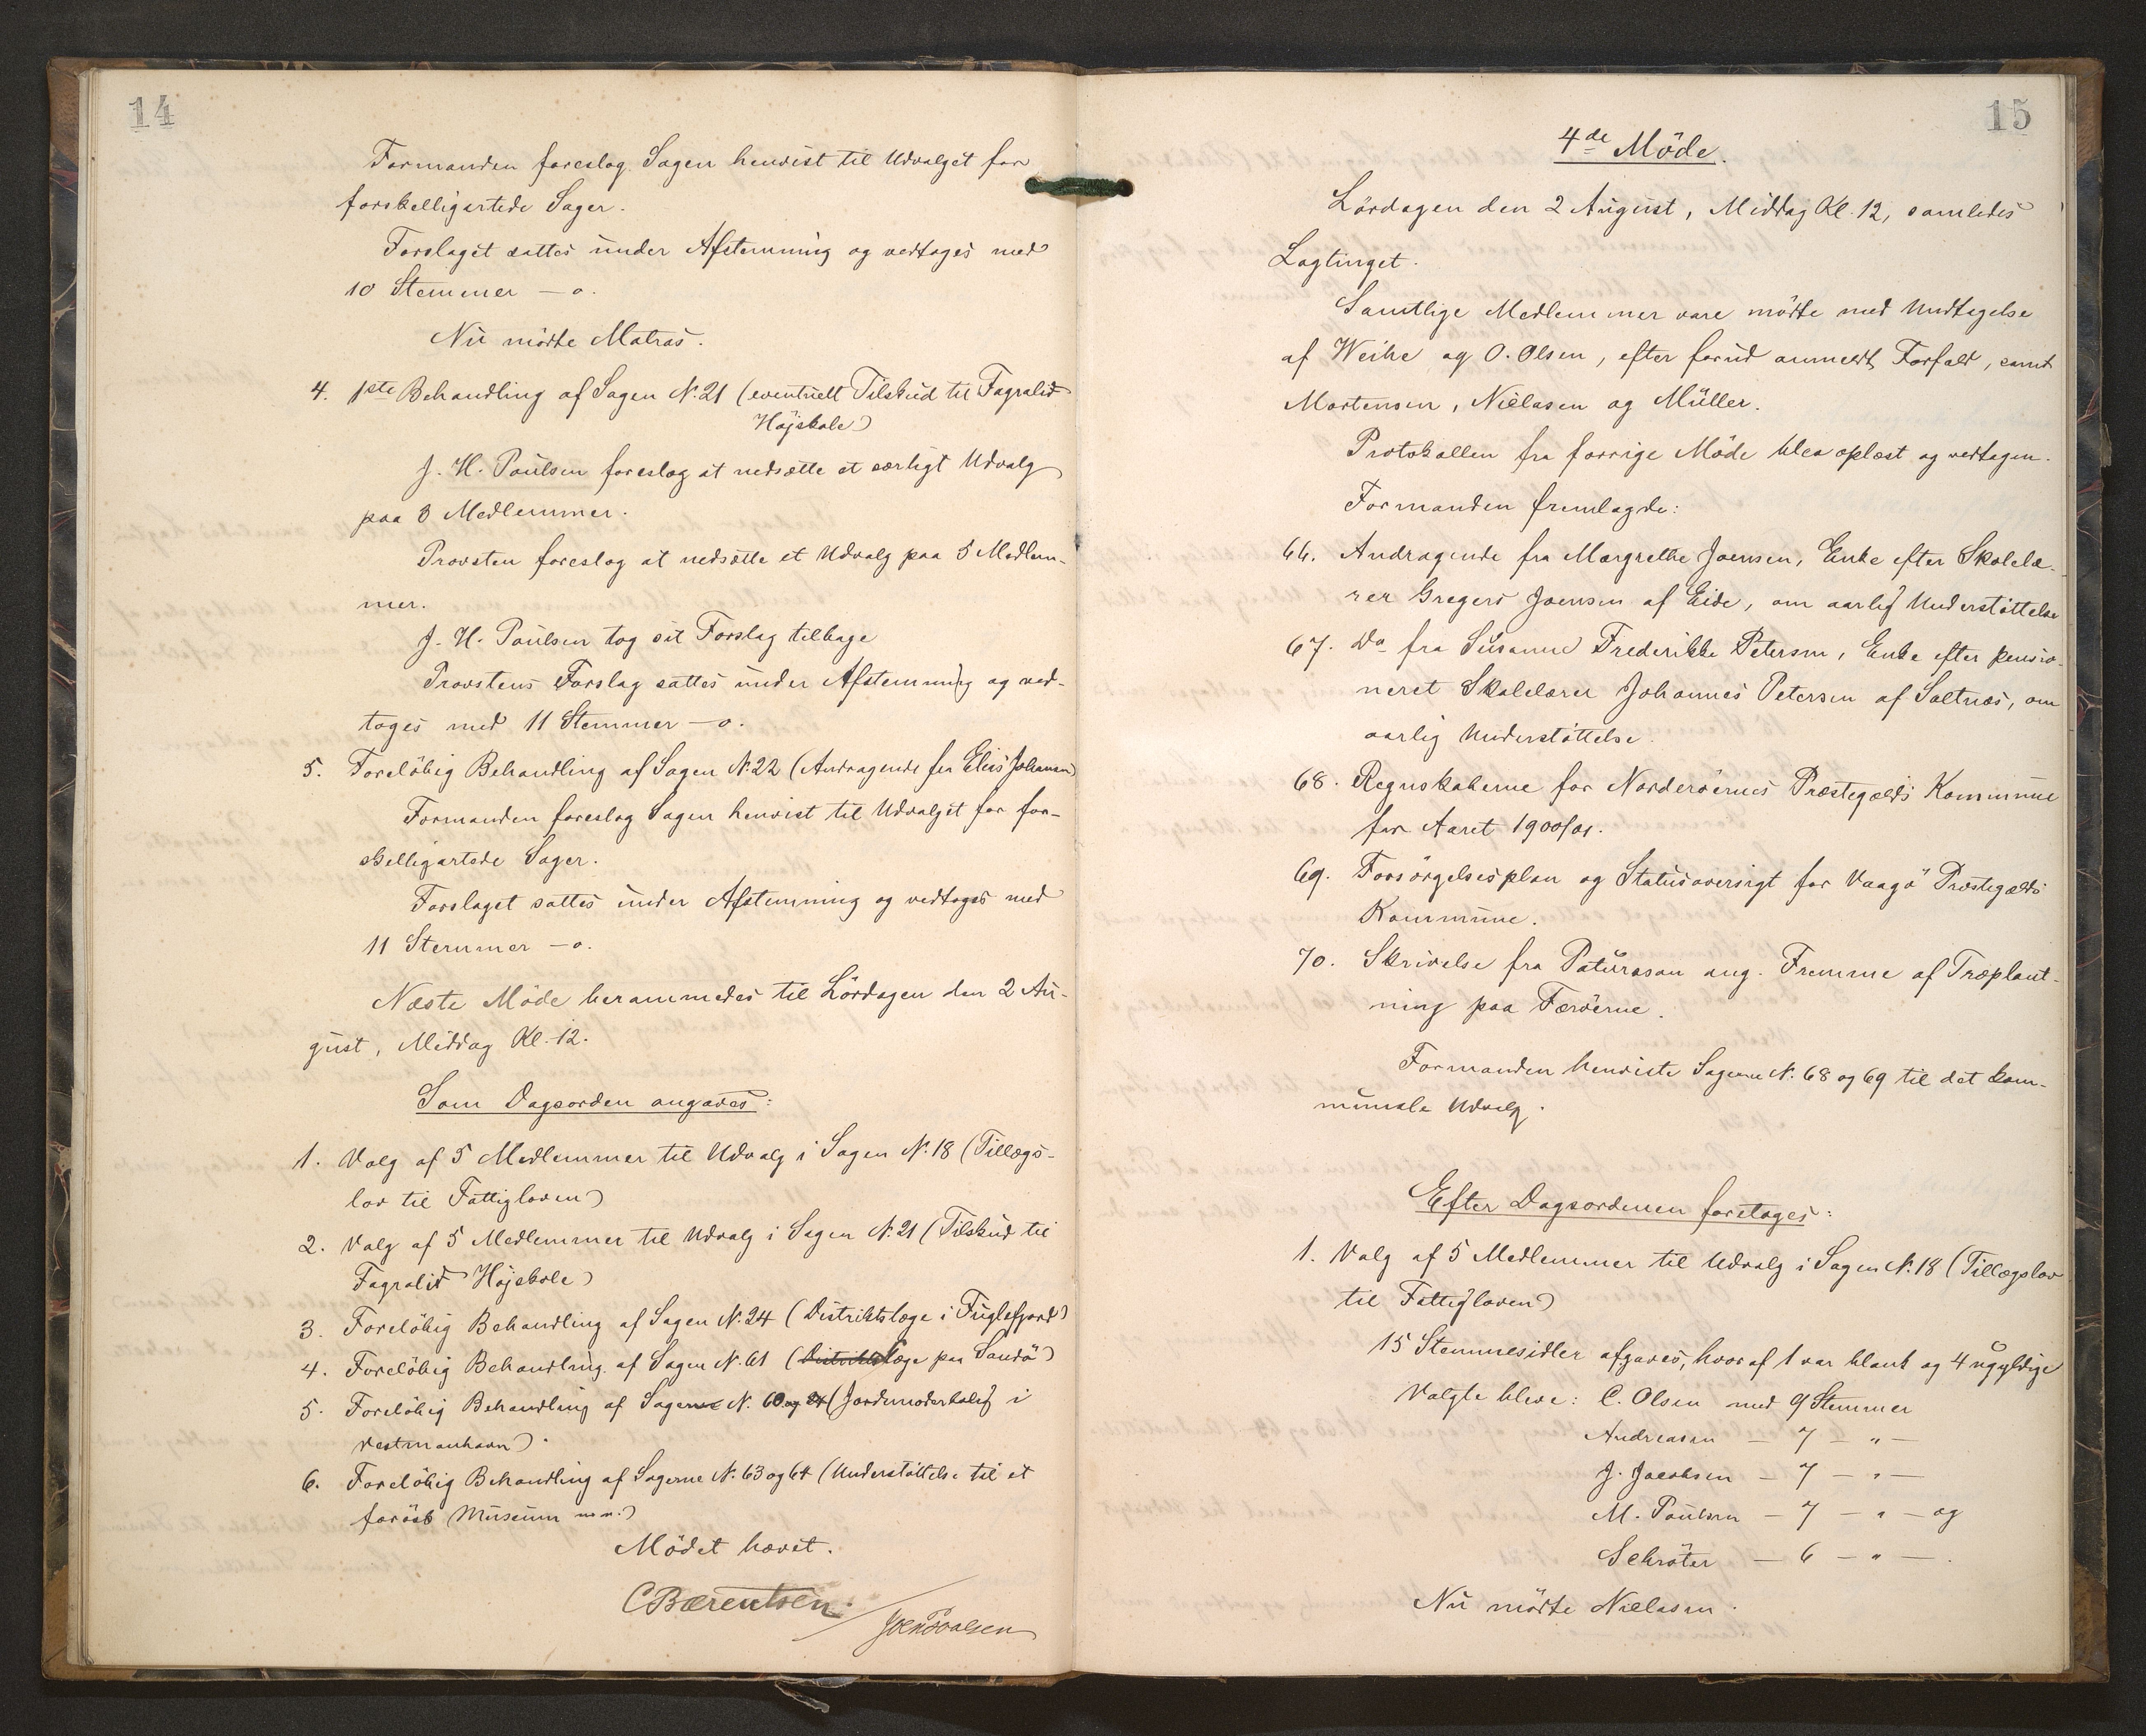 14
Formanden foreslog Sagen henvist til Udvalget for
forskelligartede Sager.
Forslaget sattes under Afstemning og vedtoges med
10 Stemmer — o.
Nu mödte Matras.
4. 1ste Behandling af Sagen N. 21 (eventuelt Tilskud til Fagralid
Höjskole)
J. H. Poulsen foreslog at nedsætte et særligt Udvalg
paa 3 Medlemmer.
Provsten foreslog at nedsætte et Udvalg paa 5 Medlem-
mer.
J. H. Poulsen tog sit Forslag tilbage
Provstens Forslag sattes under Afstemning og ved-
toges med 11 Stemmer — o.
5. Forelöbig Behandling af Sagen N. 22 (Andragende fra Elias Johansen)
Formanden foreslog Sagen henvist til Udvalget for for-
skelligartede Sager.
Forslaget sattes under Afstemning og vedtoges med
11 Stemmer — o.
Næste Möde berammedes til Lördagen den 2 Au-
gust, Middag Kl. 12.
Som Dagsorden angaves:
1. Valg af 5 Medlemmer til Udvalg i Sagen N. 18 (Tillægs-
lov til Fattigloven)
2. Valg af 5 Medlemmer til Udvalg i Sagen N. 21 (Tilskud til
Fagralid Höjskole)
3. Forelöbig Behandling af Sagen N. 24 (Distriktslæge i Fuglefjord)
4. Forelöbig Behandling af Sagen N. 61 (Distriktslæge paa Sandö)
5. Forelöbig Behandling af Sagerne N. 60 og 24 (Jordemoderbolig i
Vestmanhavn).
6. Forelöbig Behandling af Sagerne N. 63 og 64 (Understöttelse til et
færösk Museum m.m.)
Mödet hævet.
C Bærentsen / Joen Poulsen
15
4de Möde.
Lördagen den 2 August, Middag Kl. 12, samledes
Lagtinget.
Samtlige Medlemmer vare mödte med Undtagelse
af Weihe og O. Olsen, efter forud anmeldt Forfald, samt
Mortensen, Nielasen og Müller.
Protokollen fra forrige Möde blev oplæst og vedtagen.
Formanden fremlagde:
66. Andragende fra Margrethe Joensen, Enke efter Skolelæ-
rer Gregers Joensen af Eide, om aarlig Understöttelse
67. Do fra Susanne Frederikke Petersen, Enke efter pensio-
neret Skolelærer Johannes Petersen af Saltnæs, om
aarlig Understöttelse.
68. Regnskaberne for Norderöernes Præstegælds Kommune
for Aaret 1900/01.
69. Forsörgelsesplan og Statusoversigt for Vaagö Præstegælds
Kommune.
70. Skrivelse fra Patursson ang. Fremme af Træplant-
ning paa Færöerne.
Formanden henviste Sagerne N. 68 og 69 til det kom-
munale Udvalg.
Efter Dagsordenen foretoges:
1. Valg af 5 Medlemmer til Udvalg i Sagen N. 18 (Tillægslov
til Fattigloven)
15 Stemmesedler afgaves, hvoraf 1 var blank og 4 ugyldige
Valgte bleve: C. Olsen med 9 Stemmer
Andreasen — 7 — " —
J. Jacobsen — 7 — " —
M. Poulsen — 7 — " — og
Schröter — 6 — " — .
Nu mödte Nielasen.